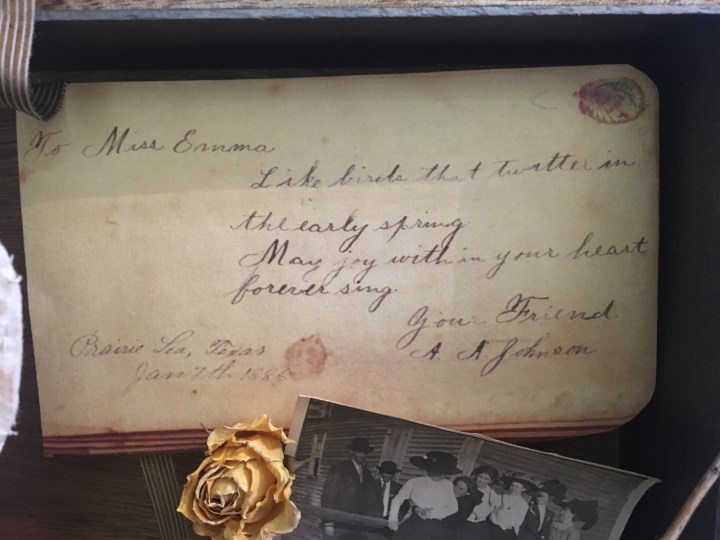 To Miss Emma
Like birds that twitter in
the early spring
May joy within your heart
forever sing.
Your Friend
A. A Johnson
Prairie Lea, Texas
Jan 7th 1886